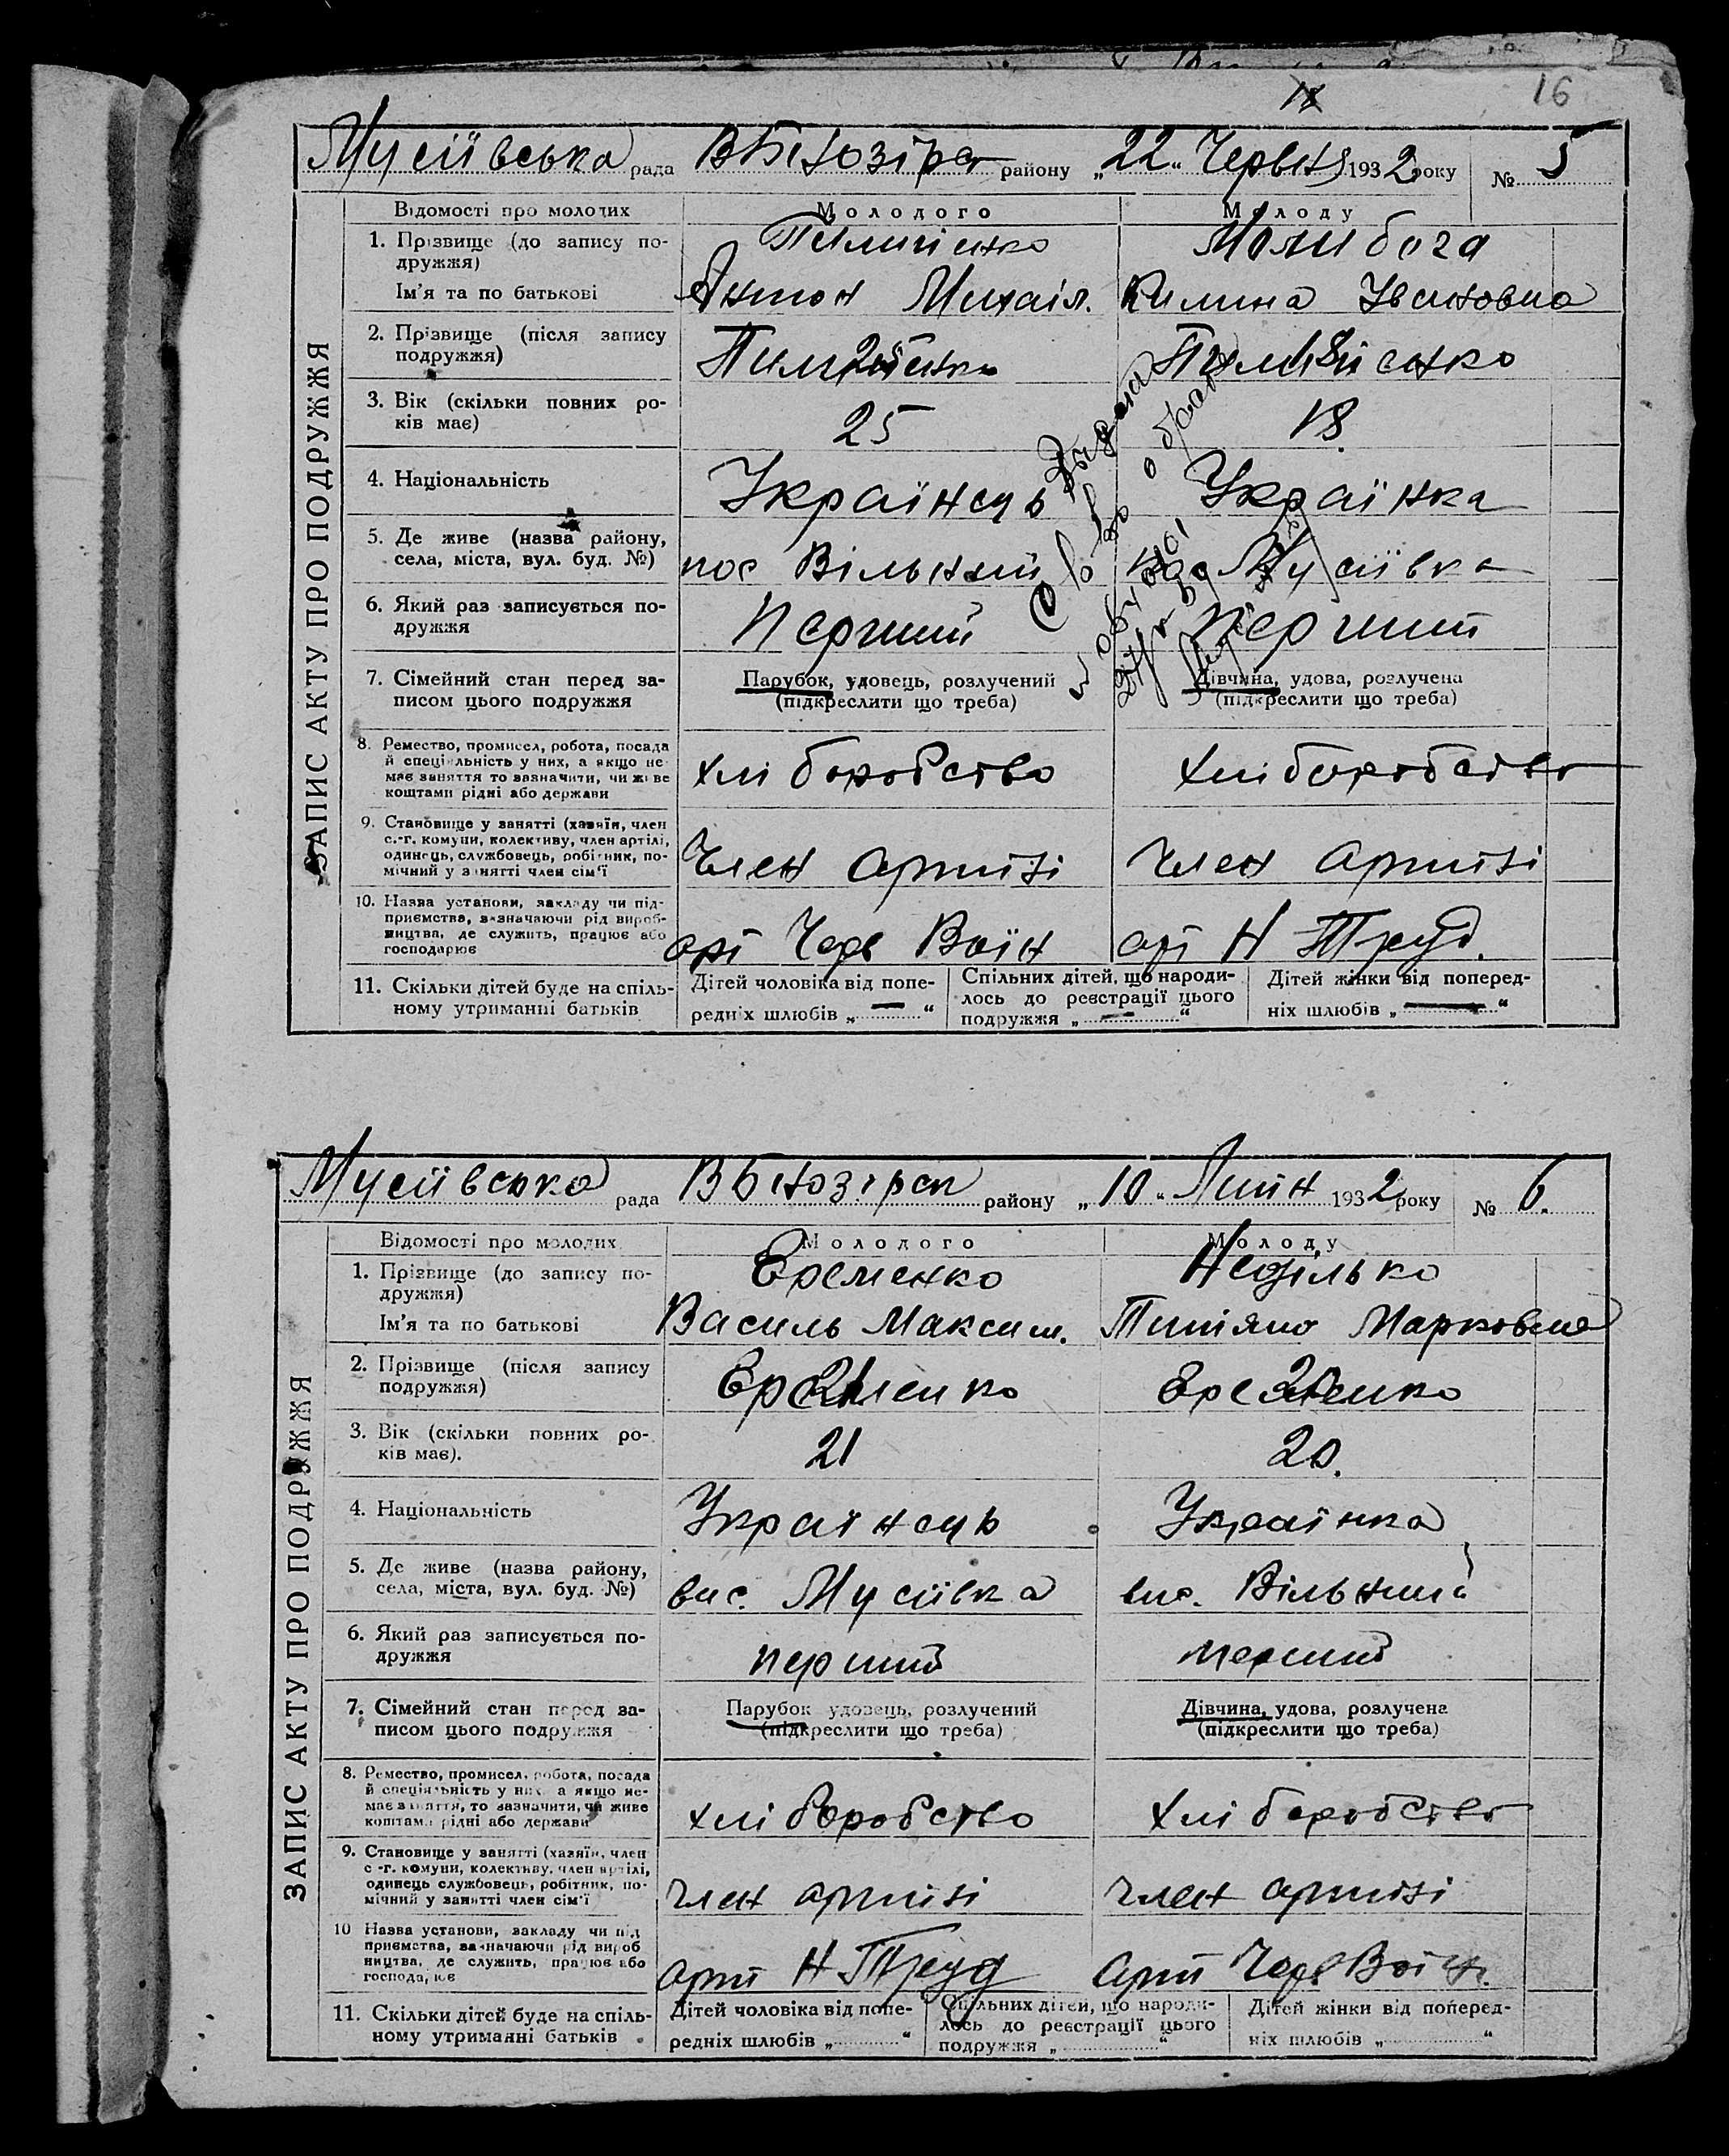 16
Мусіївська рада В Білозірк району „22“ Червня 1932 року № 5
ЗАПИС АКТУ ПРО ПОДРУЖЖЯ
Відомості про молодих Молодого Молоду
1. Прізвище (до запису по-
дружжя)
Молибога
Ім'я та по батькові Антон Михаіл. Килина Івановна
2. Прізвище (після запису
подружжя)
3. Вік (скільки повних ро-
ків має) 25 18
4. Національність Українець Українка
5. Де живе (назва району,
села, міста, вул. буд. №) пос Вільний Мусіївка
6. Який раз записується по-
дружжя Перший Перший
7. Сімейний стан перед за-
писом цього подружжя
Парубок, удовець, розлучений
(підкреслити що треба)
Дівчина, удова, розлучена
(підкреслити що треба)
8. Ремество, промисел, робота, посада
й спеціяльність у них, а якщо не
має заняття то зазначити, чи живе
коштами рідні або держави
хліборобство хліборобство
9. Становище у занятті (хазяїн, член
с.-г. комуни, колективу, член артілі,
одинець, службовець, робітник, по-
мічний у занятті член сім'ї
Член артілі Член артілі
10. Назва установи, закладу чи під-
приємства, зазначаючи рід вироб-
ництва, де служить, працює або
господарює
арт Черв Воїн арт Н Труд.
11. Скільки дітей буде на спіль-
ному утриманні батьків
Дітей чоловіка від попе-
редніх шлюбів „—“
Спільних дітей, що народи-
лось до реєстрації цього
подружжя „—“
Дітей жінки від поперед-
ніх шлюбів „—“
Видана
о браке
Мусіївська рада В Білозірск району „10“ Липн 1932 року № 6.
ЗАПИС АКТУ ПРО ПОДРУЖЖЯ
Відомості про молодих Молодого Молоду
1. Прізвище (до запису по-
дружжя)
Єременко Неділько
Ім'я та по батькові Василь Максим. Титяна Марковна
2. Прізвище (після запису
подружжя) Єременко Єременко
3. Вік (скільки повних ро-
ків має). 21 20.
4. Національність Українець Українка
5. Де живе (назва району,
села, міста, вул. буд. №) вис. Мусіївка вис. Вільний
6. Який раз записується по-
дружжя перший перший
7. Сімейний стан перед за-
писом цього подружжя
Парубок удовець, розлучений
(підкреслити що треба)
Дівчина, удова, розлучена
(підкреслити що треба)
8. Ремество, промисел, робота, посада
й спеціяльність у них, а якщо не-
має заняття, то зазначити, чи живе
коштами рідні або держави
хліборобство хліборобство
9. Становище у занятті (хазяїн, член
с-г. комуни, колективу, член артілі,
одинець службовець, робітник, по-
мічний у занятті член сім'ї
член артілі член артілі
10 Назва установи, закладу чи під
приємства, зазначаючи рід вироб
ництва, де служить, працює або
господарює
арт Н Труд арт Черв Воїн.
11. Скільки дітей буде на спіль-
ному утриманні батьків
Дітей чоловіка від попе-
редніх шлюбів „ “
Спільних дітей, що народи-
лось до реєстрації цього
подружжя „ “
Дітей жінки від поперед-
ніх шлюбів „ “